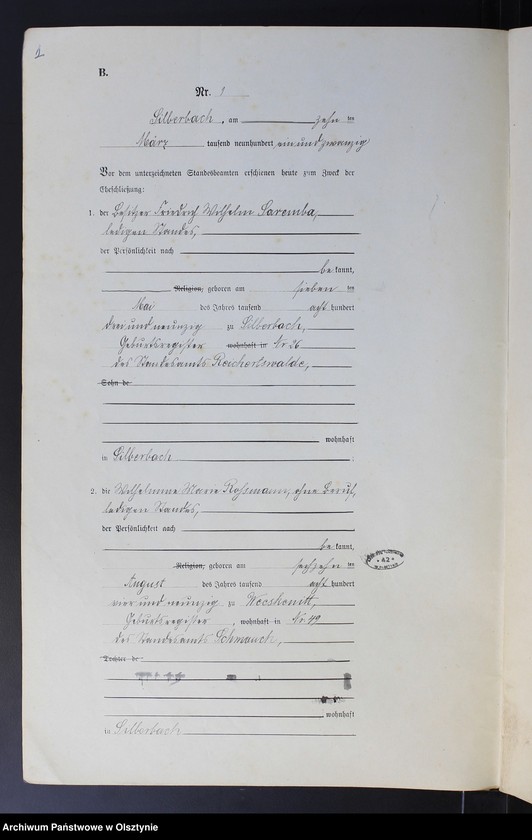 1
B.
Nr. 1
Silberbach, am zehn ten
März tausend neunhundert einundzwanzig
Vor dem unterzeichneten Standesbeamten erschienen heute zum Zweck der
Eheschließung:
1. der Besitzer Friedrich Wilhelm Saremba,
ledigen Standes,
der Persönlichkeit nach
be kannt,
Religion, geboren am sieben ten
Mai des Jahres tausend acht hundert
drei und neunzig zu Silberbach,
Geburtsregister wohnhaft in Nr 26
des Standesamts Reichertswalde,
Sohn de
wohnhaft
in Silberbach ;
2. die Wilhelmine Marie Rossmann, ohne Beruf,
ledigen Standes,
der Persönlichkeit nach
be kannt,
Religion, geboren am sechzehn ten
August des Jahres tausend acht hundert
vier und neunzig zu Weeskenitt,
Geburtsregister , wohnhaft in Nr. 49
des Standesamts Schmauch,
Tochter de
wohnhaft
in Silberbach
42
Archiwum Państwowe w Olsztynie